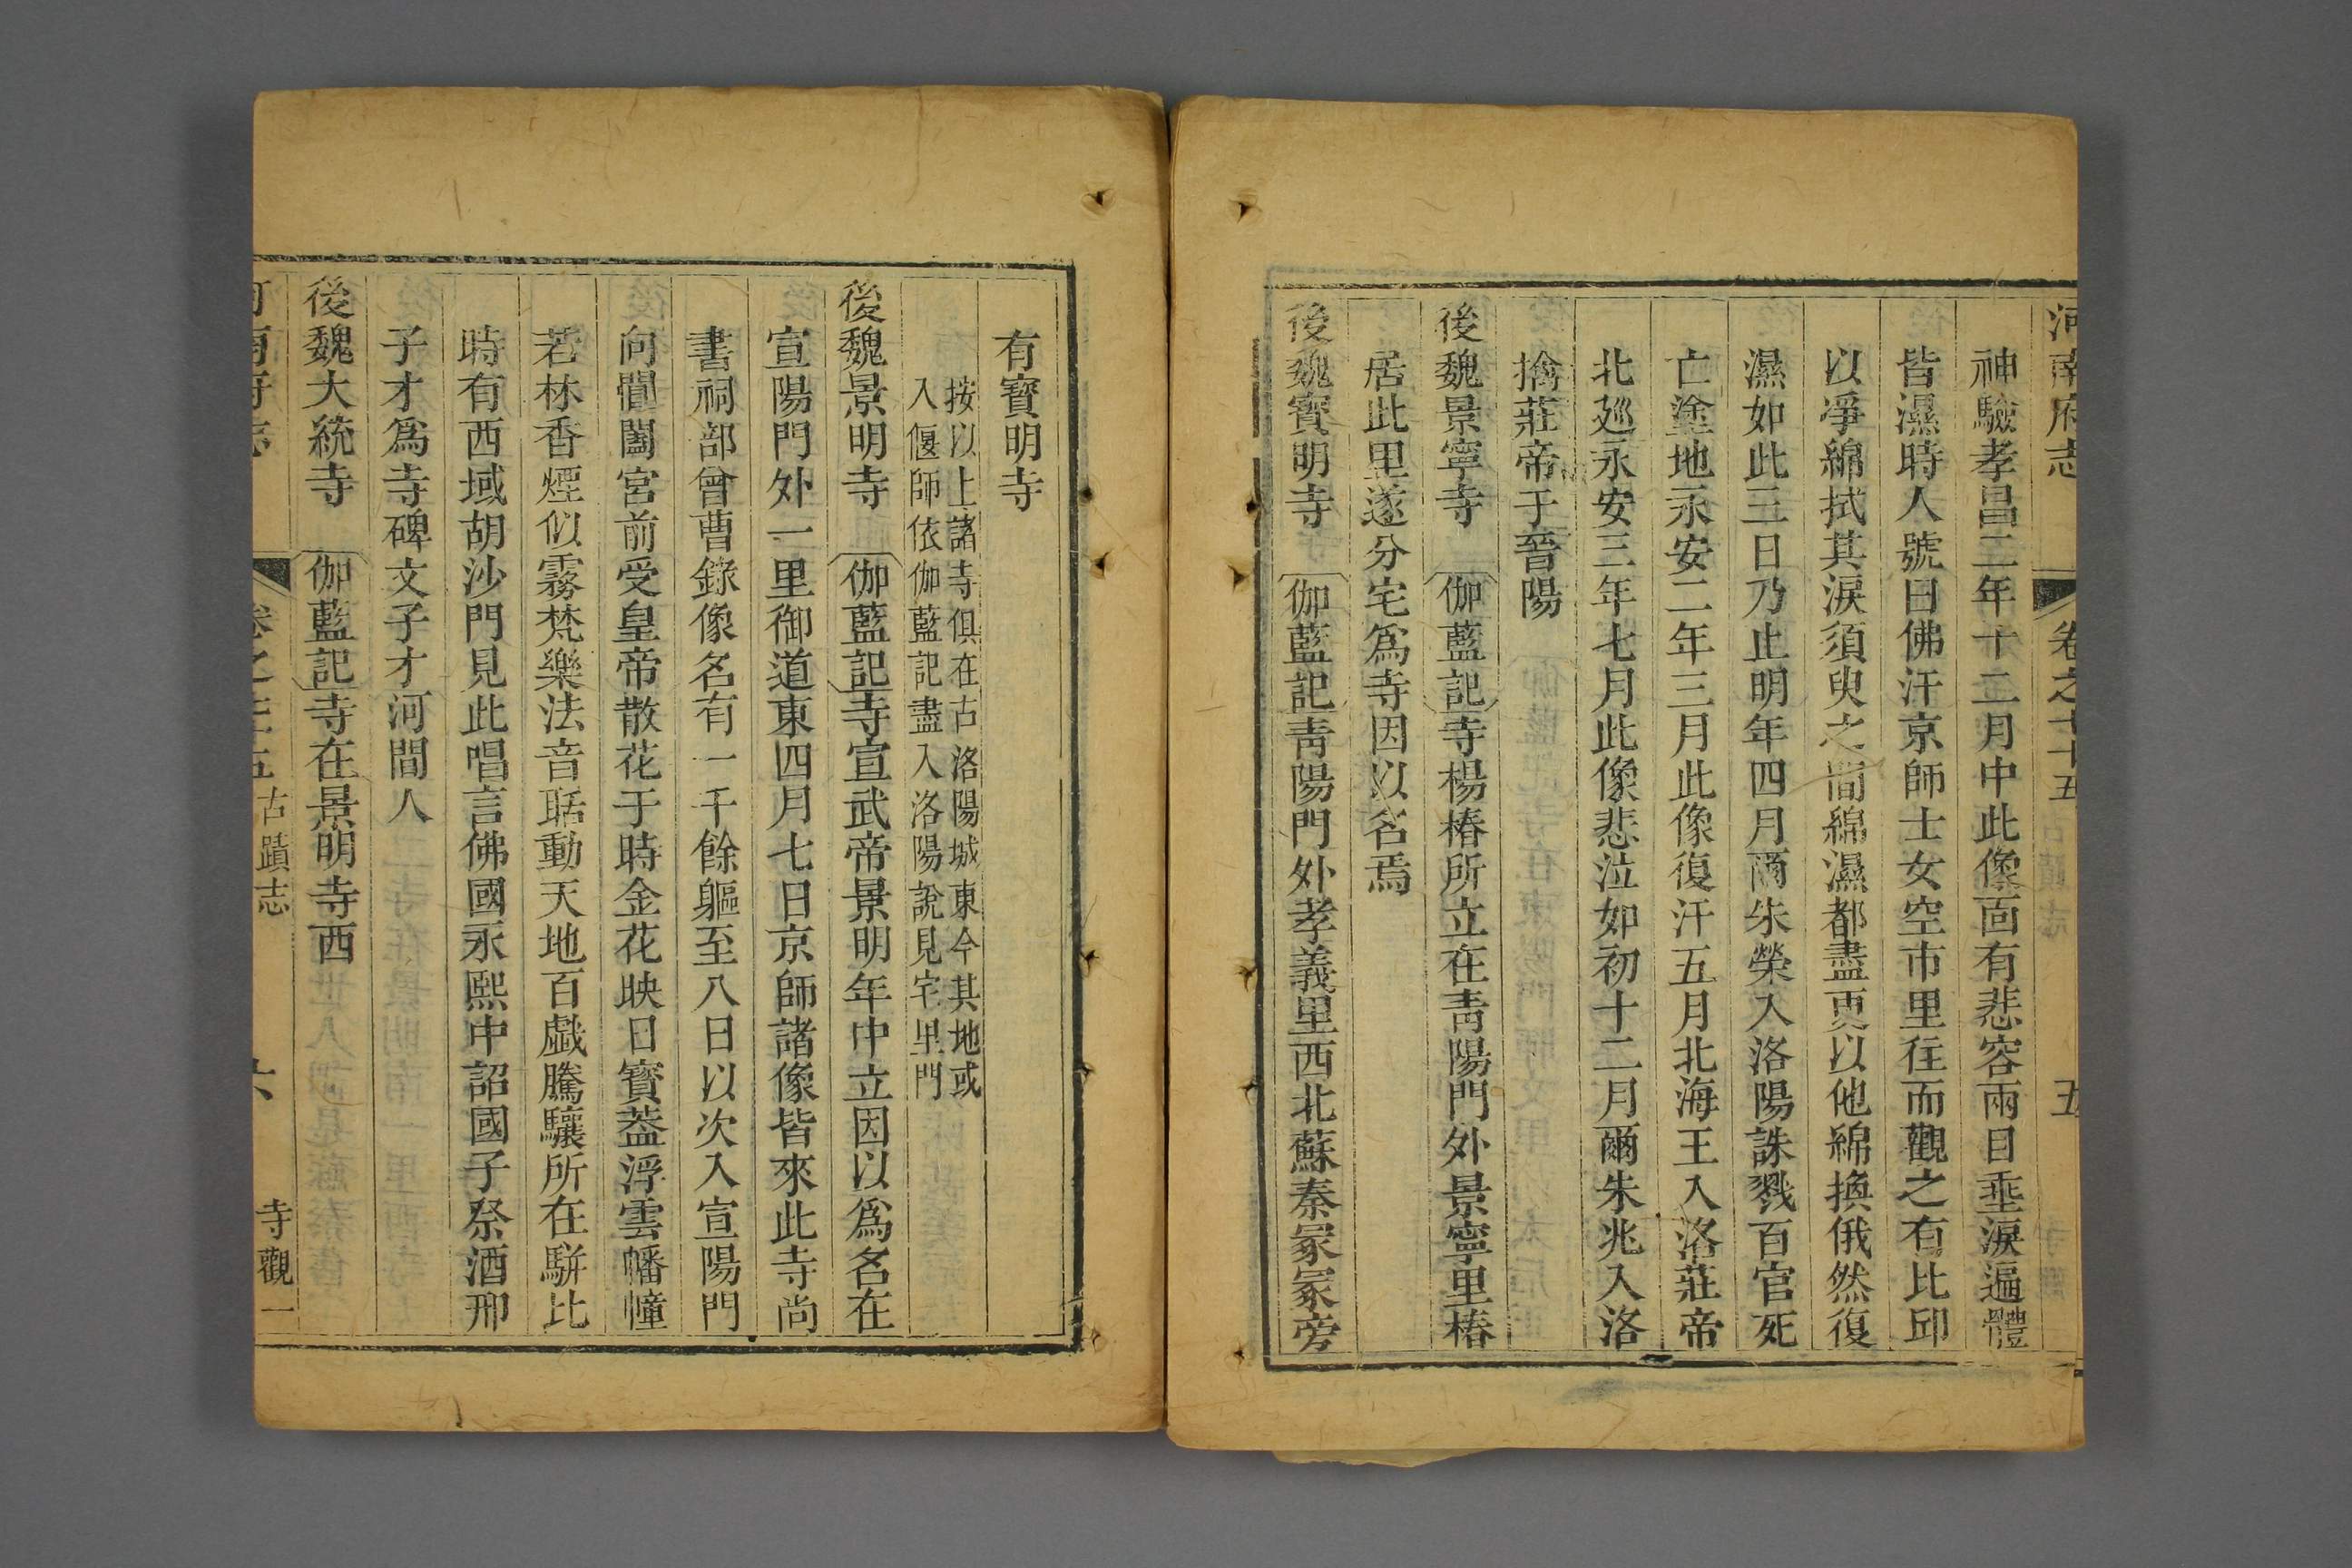 河南府志 卷之七十五 五
神驗孝昌二年十二月中此像面有悲容兩目垂淚遍體
皆濕時人號曰佛汗京師士女空市里往而觀之有比邱
以淨綿拭其淚須臾之間綿濕都盡更以他綿換俄然復
濕如此三日乃止明年四月爾朱榮入洛陽誅戮百官死
亡塗地永安二年三月此像復汗五月北海王入洛莊帝
北廵永安三年七月此像悲泣如初十二月爾朱兆入洛
擒莊帝于晉陽
後魏景寧寺 伽藍記寺楊椿所立在青陽門外景寧里椿
居此里遂分宅爲寺因以名焉
後魏寳明寺 伽藍記青陽門外孝義里西北蘇秦冢冢旁
有寳明寺
按以上諸寺俱在古洛陽城東今其地或
入偃師依伽藍記盡入洛陽說見宅里門
後魏景明寺 伽藍記寺宣武帝景明年中立因以爲名在
宣陽門外一里御道東四月七日京師諸像皆來此寺尚
書祠部曾曹錄像名有一千餘軀至八日以次入宣陽門
向閶闔宮前受皇帝散花于時金花映日寳葢浮雲幡幢
若林香煙似霧梵樂法音聒動天地百戲騰驤所在駢比
時有西域胡沙門見此唱言佛國永熙中詔國子祭酒邢
子才爲寺碑文子才河間人
後魏大統寺 伽藍記寺在景明寺西
河南府志 卷之七十五 古蹟志 六 寺觀一